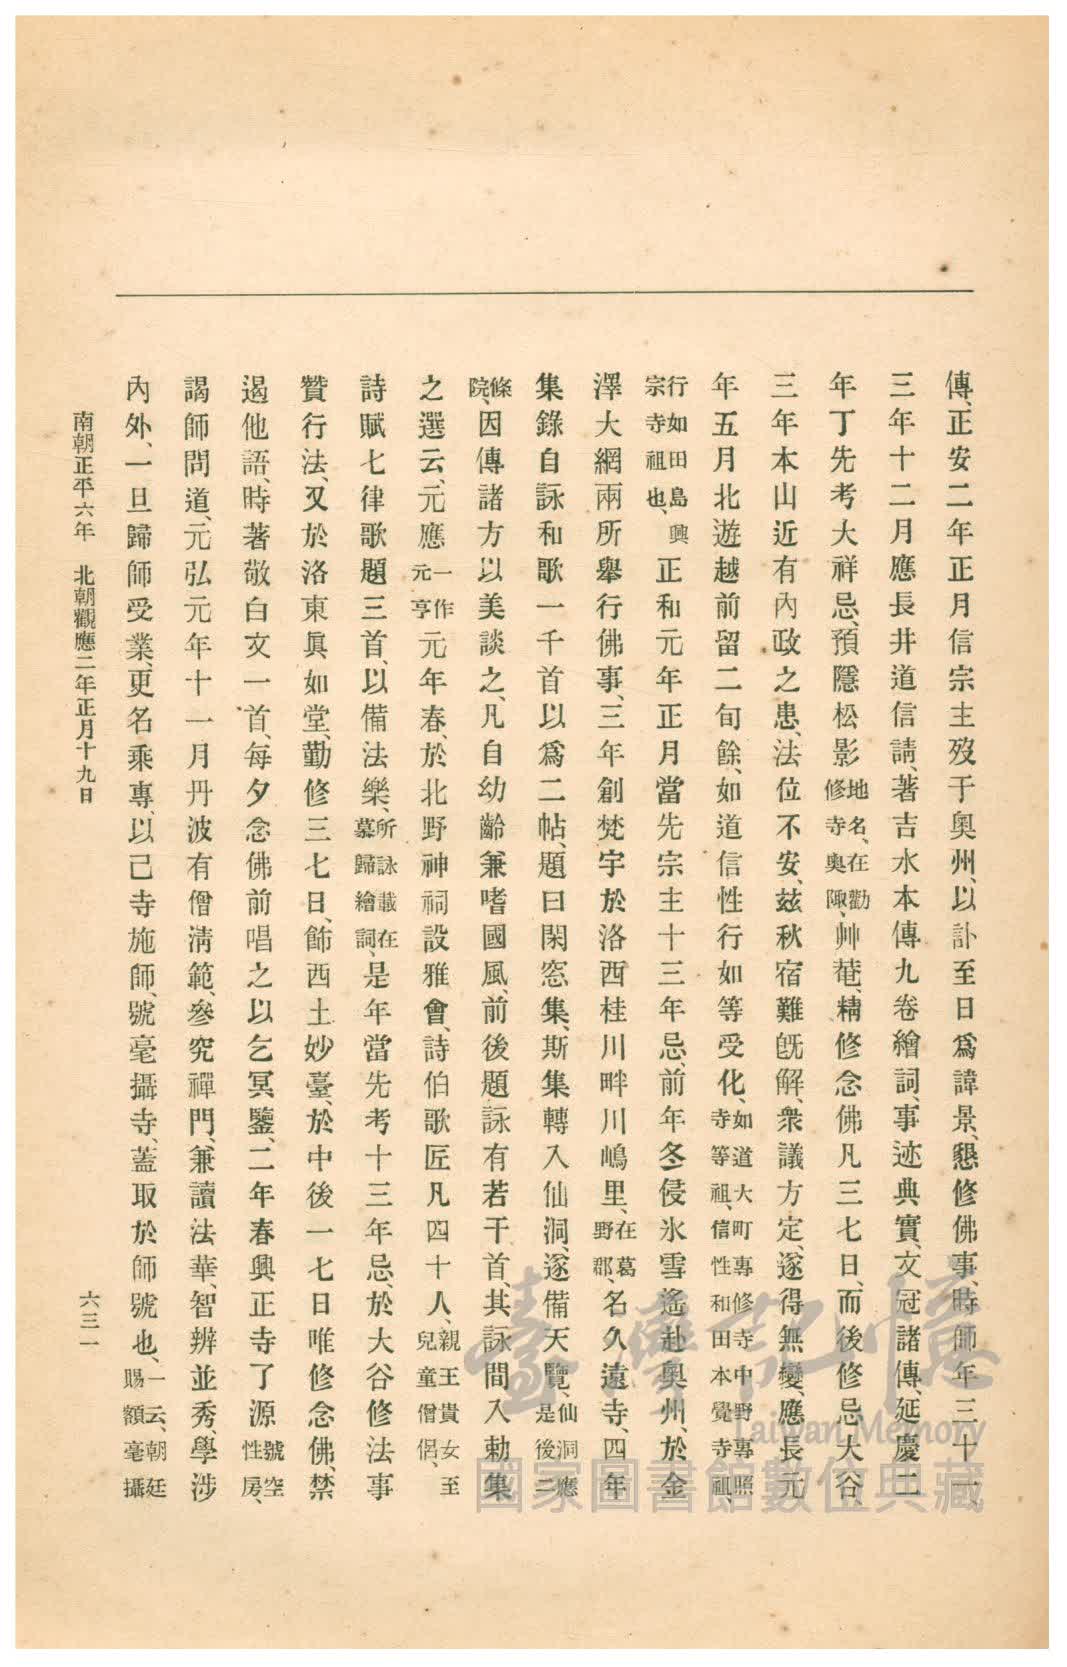 傳、正安二年正月信宗主歿于奧州、以訃至日爲諱景、懇修佛事、時師年三十一、
三年十二月應長井道信請、著吉水本傳九卷繪詞、事迹典實、文冠諸傳、延慶二
年丁先考大祥忌、預隱松影地名、在勸修寺奧陬、艸菴、精修念佛凡三七日、而後修忌大谷、
三年本山近有內政之患、法位不安、玆秋宿難旣解、衆議方定、遂得無變、應長元
年五月北遊越前留二旬餘、如道信性行如等受化、如道大町專修寺中野專照寺等祖、信性和田本覺寺祖、
行如田島興宗寺祖也、正和元年正月當先宗主十三年忌、前年冬侵氷雪遙赴奧州、於金
澤大網兩所舉行佛事、三年創梵宇於洛西桂川畔川嶋里、在葛野郡、名久遠寺、四年
集錄自詠和歌一千首以爲二帖、題曰閑窓集、斯集轉入仙洞、遂備天覽、仙洞應是後二
條院、因傳諸方以美談之、凡自幼齡兼嗜國風、前後題詠有若干首、其詠間入勅集
之選云、元應一作元亨元年春、於北野神祠設雅會、詩伯歌匠凡四十人、親王貴女至兒童僧侶、
詩賦七律歌題三首、以備法樂、所詠載在慕歸繪詞、是年當先考十三年忌、於大谷修法事
贊行法、又於洛東眞如堂、勤修三七日、飾西土妙臺、於中後一七日唯修念佛、禁
遏他語、時著敬白文一首、每夕念佛前唱之以乞冥鑒、二年春興正寺了源號空性房、
謁師問道、元弘元年十一月丹波有僧淸範、參究禪門、兼讀法華、智辨並秀、學涉
內外、一旦歸師受業、更名乘專、以己寺施師、號毫攝寺、蓋取於師號也、一云、朝廷賜額毫攝
南朝正平六年　北朝觀應二年正月十九日
六三一
臺灣記憶
Taiwan Memory
國家圖書館數位典藏